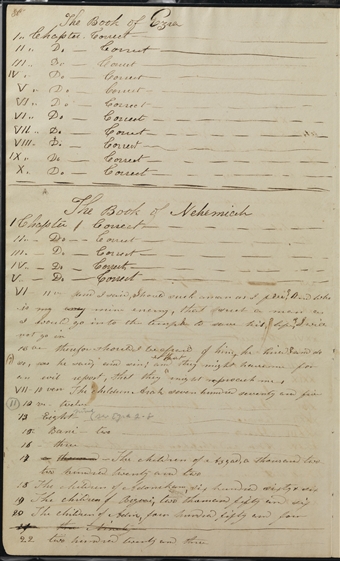 The Book of Ezra
I " Chapter. Correct
II " Do - Correct
III " Do - Correct
IV " Do - Correct
V " Do - Correct
VI " Do - Correct
VI " Do - Correct
VII " Do - Correct
VIII " Do - Correct
IX " Do - Correct
X " Do - Correct
The Book of Nehemiah
I Chapter Correct
II " - Do - Correct
III. - Do - Correct
IV " - Do - Correct
V " - Do - Correct
VI - 11 And I said, Should such man as I
is my enemy, that such a man as
I would go into the temple to save his life, I will
not go in
of him, he hired
and sin, and that they might have
an evil report, that they might reproach me,
VII - The children of Arah seven hundred seventy and five
12 - twelve
13 Eight
15 - Bani - two
16 - three
17 - The children of Azgad, a thousand two
two hundred twenty and two
18 The children of Adonikam, six hundred sixty & six
19 The children of Bigvai, two thousand fifty and six
20 The children of Adin, four hundred fifty and four
22 two hundred twenty and three